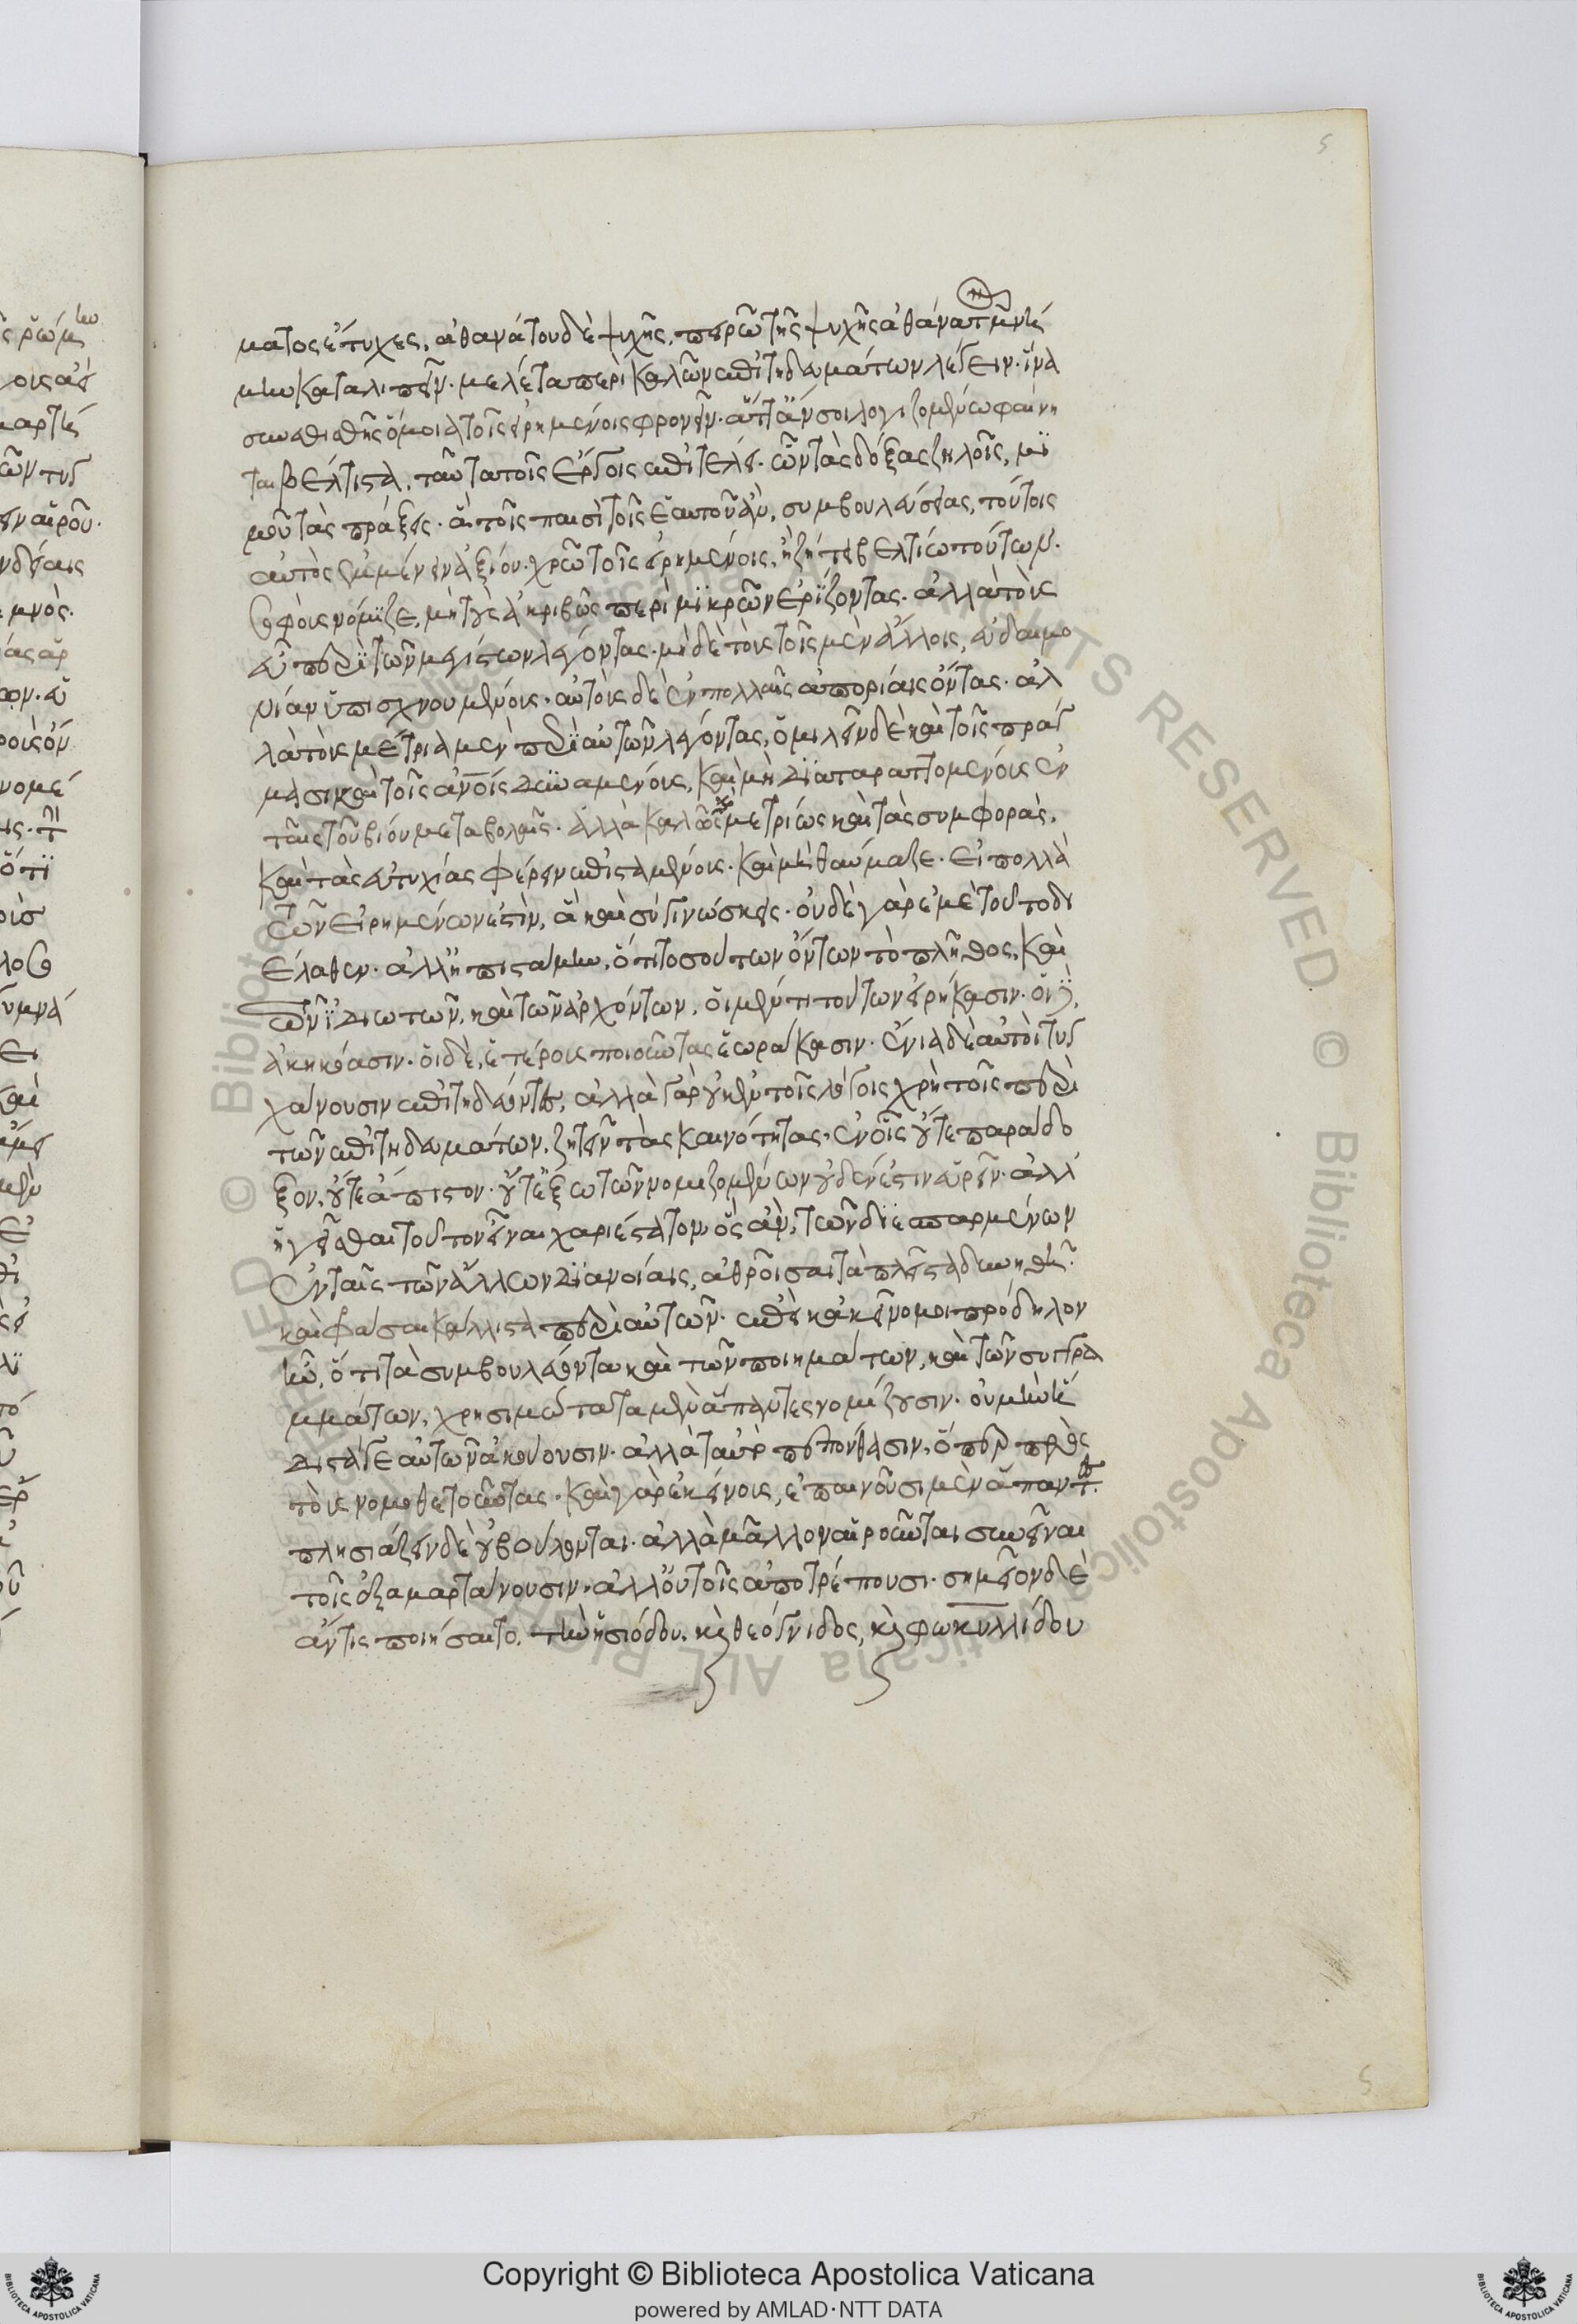 ματος ἔτυχες, ἀθανάτου δὲ ψυχῆς, πειρῶ τῆς ψυχῆς ἀθάνατον μνή
μην καταλιπεῖν. μελέτα περὶ καλῶν ἐπιτηδευμάτων λέγειν. ἵνα
συνεθισθῆς ὅμοια τοῖς εἰρημένοις φρονεῖν. ἅττ' ἄν σοι λογιζομένω φαίνη
ται βέλτιστα, ταῦτα τοῖς ἔργοις ἐπιτέλει. ὧν τὰς δόξας ζηλοῖς, μι
μοῦ τὰς πράξεις. ἃ τοῖς παισὶ τοῖς ἑαυτοῦ ἂν, συμβουλεύσειας, τούτοις
αὐτὸς ἐμμένειν ἀξίου. χρῶ τοῖς εἰρημένοις, ἢ ζήτει βελτίω τούτων.
σοφοὺς νόμιζε, μὴ τοὺς ἀκριβῶς περὶ μικρῶν ἐρίζοντας. ἀλλὰ τοὺς
εὖ περὶ τῶν μεγίστων λέγοντας. μὴ δὲ τοὺς τοῖς μὲν ἄλλοις, εὐδαιμο
νίαν ὑπισχνουμένους. αὐτοὺς δὲ ἐν πολλαῖς ἀπορίαις ὄντας. ἀλ
λὰ τοὺς μέτρια μὲν περὶ αὐτῶν λέγοντας, ὁμιλεῖν δὲ καὶ τοῖς πράγ
μασι καὶ τοῖς ἀνοις δυναμένους, καὶ μὴ διαταραττομένους ἐν
ταῖς τοῦ βίου μεταβολαῖς. ἀλλὰ καλῶς καὶ μετρίως καὶ τὰς συμφορὰς,
καὶ τὰς εὐτυχίας φέρειν ἐπισταμένους. καὶ μὴ θαύμαζε. εἰ πολλὰ
τῶν εἰρημένων ἐστὶν, ἃ καὶ σὺ γινώσκεις. οὐδὲ γὰρ ἐμὲ τοῦτο δι
έλαθεν. ἀλλ' ἠπιστάμην, ὅτι τοσούτων ὄντων τὸ πλῆθος, καὶ
τῶν ἰδιωτῶν, καὶ τῶν ἀρχόντων, οἱ μέν τι τούτων εἰρήκασιν. οἱ δὲ,
ἀκηκόασιν. οἱ δὲ, ἑτέρους ποιοῦντας ἑωράκασιν. ἔνια δὲ αὐτοὶ τυγ
χάνουσιν ἐπιτηδεύοντες, ἀλλὰ γὰρ οὐκ ἐν τοῖς λόγοις χρὴ τοῖς περὶ
τῶν ἐπιτηδευμάτων, ζητεῖν τὰς καινότητας, ἐν οἷς οὔτε παράδο
ξον, οὔτε ἄπιστον. οὔτε ἔξω τῶν νομιζομένων οὐδὲν ἔστιν εὑρεῖν. ἀλλ'
ἡγεῖσθαι τοῦτον εἶναι χαριέστατον, ὃς ἂν, τῶν διεσπαρμένων
ἐν ταῖς τῶν ἄλλων διανοίαις, ἀθροῖσαι τὰ πλεῖστα δυνηθῇ.
καὶ φράσαι κάλλιστα περὶ αὐτῶν. ἐπεὶ κἀκεῖνό μοι πρόδηλον
ἦν, ὅτι τὰ συμβουλεύοντα καὶ τῶν ποιημάτων, καὶ τῶν συγγρα
μμάτων, χρησιμώτατα μὲν ἅπαντες νομίζουσιν. οὐ μὴν ἥ
διστά γε αὐτῶν ἀκούουσιν. ἀλλὰ ταὐτὸ πεπόνθασιν, ὅπερ πρὸς
τοὺς νομοθετοῦντας. καὶ γὰρ ἐκείνους, ἐπαινοῦσι μὲν ἅπαντες.
πλησιάζειν δὲ οὐ βούλονται. ἀλλὰ μᾶλλον αἱροῦνται συνεῖναι
τοῖς ἐξαμαρτάνουσιν. ἀλλ' οὐ τοῖς ἀποτρέπουσι. σημεῖον δὲ
ἄν τις ποιήσαιτο, τὴν ἡσιόδου, καὶ θεόγνιδος, καὶ φωκυλλίδου
5
5
Copyright © Biblioteca Apostolica Vaticana
powered by AMLAD·NTT DATA